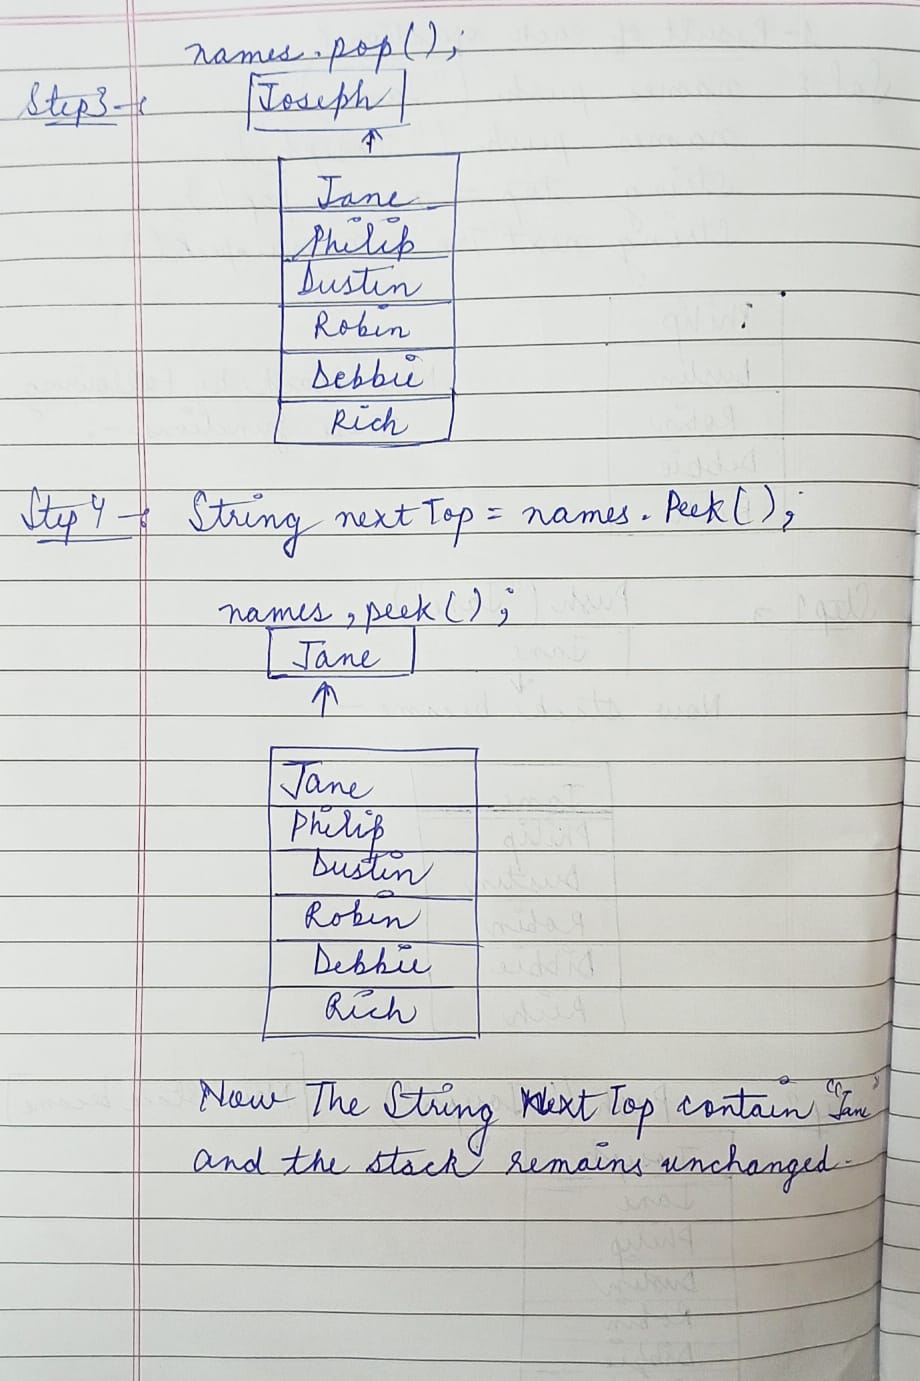 names.pop();
Step3→
Joseph
Jane
Philip
Dustin
Robin
Debbie
Rich
Step 4→ String next Top = names. Peek();
names, peek();
Jane
Jane
Philip
Dustin
Robin
Debbie
Rich
Now The String Next Top contain "Jane"
and the stack remains unchanged.